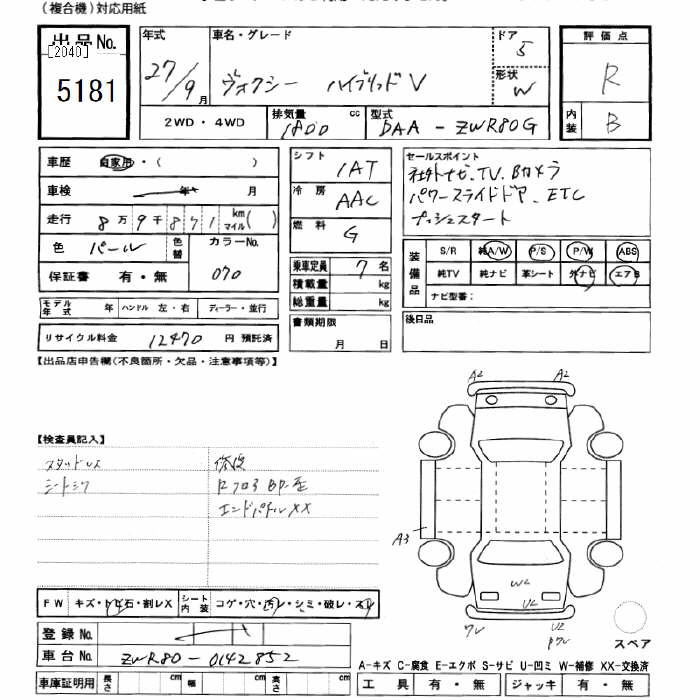 (複合機)対応用紙
出品No.
[2040]
5181
年式
27/9月
車名・グレード
ヴォクシー ハイブリッドV
ドア
5
形状
W
評価点
R
内装
B
2WD・4WD
排気量
1800 cc
型式
DAA-ZWR80G
車歴 自家用・( )
車検 年 月
走行 8万9千871 km マイル( )
色 パール
色替
カラーNo.
070
保証書 有・無
モデル年式 年 ハンドル 左・右 ディーラー・並行
リサイクル料金 12470 円 預託済
シフト
1AT
冷房
AAC
燃料
G
乗車定員 7名
積載量 kg
総重量 kg
書類期限
月 日
セールスポイント
社外ナビ.TV.Bカメラ
パワースライドドア.ETC
プッシュスタート
装備品
S/R 純A/W P/S P/W ABS
純TV 純ナビ 革シート 外ナビ エアB
ナビ型番:
後日品
【出品店申告欄(不良箇所・欠品・注意事項等)】
【検査員記入】
スタッドレス
シートシワ
修復
エンドパネルXX
FW キズ・トビ石・割レX
シート内装 コゲ・穴・汚レ・シミ・破レ・スレ
登録No.
車台No. ZWR80-0142852
車庫証明用 長さ cm 幅 cm 高さ cm
A2 A2
A3
W2
U2
U2
スペア
A-キズ C-腐食 E-エクボ S-サビ U-凹ミ W-補修 XX-交換済
工具 有・無 ジャッキ 有・無